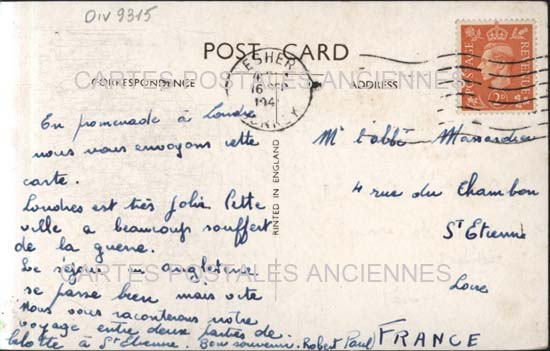 Div 9315
POST CARD
CORRESPONDENCE
ADDRESS
ESHER
16 SEP
194
SURREY
POSTAGE
REVENUE
CARTES POSTALES ANCIENNES
En promenade à Londre
nous vous envoyons cette
carte.
Londres est très jolie Cette
ville a beaucoup souffert
de la guerre.
Le séjour en angleterre
se passe bien mais vite
Nous vous raconterons notre
voyage entre deux parties de
belotte à St Etienne. Bon souvenir. Robert Paul
RINTED IN ENGLAND
Mr l'abbé
4 rue du Chambon
St Etienne
Loire
FRANCE
CARTES POSTALES ANCIENNES